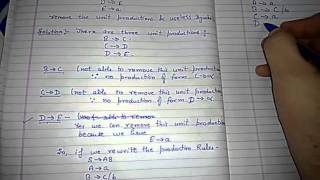 D → E
E → a
remove the unit productions & useless
Solution:- There are three unit productions:
B → C
C → D
D → E
B → C (not able to remove this unit production
∵ no production of form C → α
C → D (not able to remove this unit production
∵ no production of form D → α
D → E - Not able to remove
Yes we can remove this unit production
because we have
E → a
So, if we rewrite the production Rules-
S → AB
A → a
B → C/b
A → a
B → C/b
C → a
D